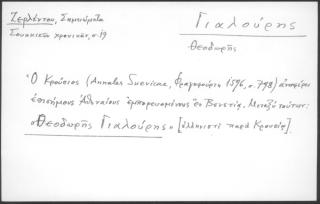 Ζερλέντου, Σημειώματα
Γιαλούρης
σ. 19
Θεοδωρῆς
Ὁ Κρούσιος (Annales Suevicae, Φραγκφούρτη 1596, σ. 798) ἀναφέρει
ἐπισήμους Ἀθηναίους ἐμπορευομένους ἐν Βενετίᾳ. Μεταξὺ τούτων:
«Θεοδωρῆς Γιαλούρης» [ἑλληνιστὶ παρὰ Κρουσίῳ].